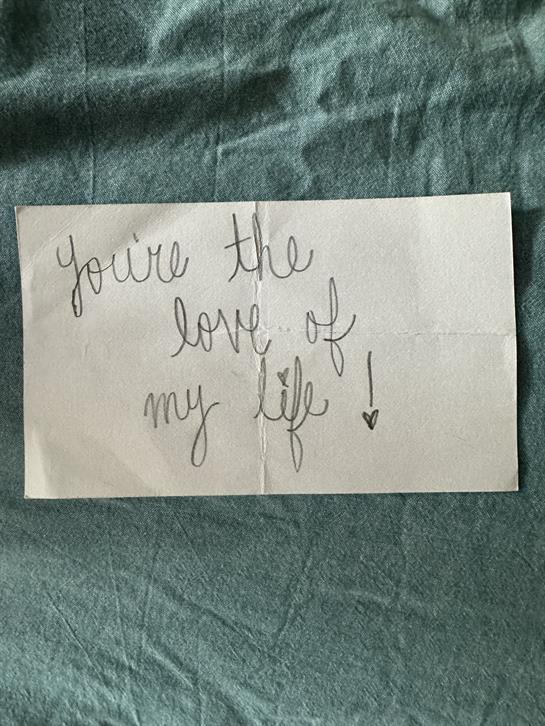 You're the
love of
my life!